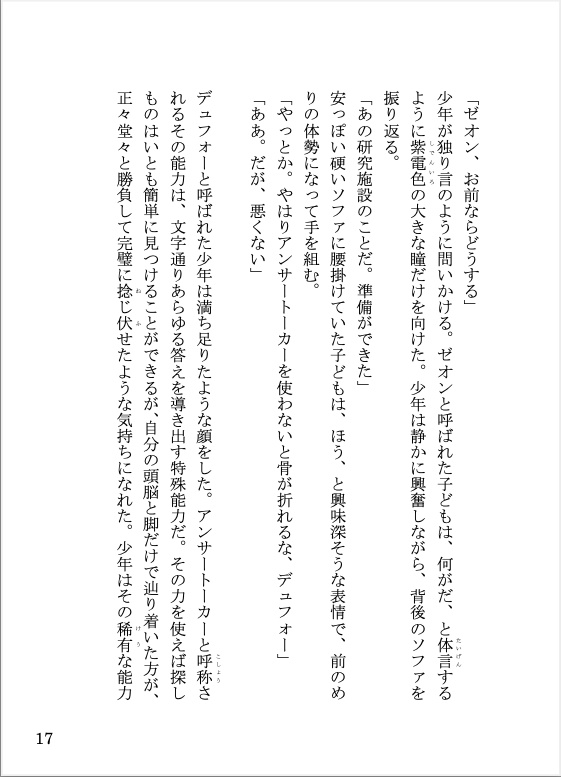 「ゼオン、お前ならどうする」
少年が独り言のように問いかける。ゼオンと呼ばれた子どもは、何がだ、と体言する
ように紫電色の大きな瞳だけを向けた。少年は静かに興奮しながら、背後のソファを
振り返る。
「あの研究施設のことだ。準備ができた」
安っぽい硬いソファに腰掛けていた子どもは、ほう、と興味深そうな表情で、前のめ
りの体勢になって手を組む。
「やっとか。やはりアンサートーカーを使わないと骨が折れるな、デュフォー」
「ああ。だが、悪くない」
デュフォーと呼ばれた少年は満ち足りたような顔をした。アンサートーカーと呼称さ
れるその能力は、文字通りあらゆる答えを導き出す特殊能力だ。その力を使えば探し
ものはいとも簡単に見つけることができるが、自分の頭脳と脚だけで辿り着いた方が、
正々堂々と勝負して完璧に捻じ伏せたような気持ちになれた。少年はその稀有な能力
17